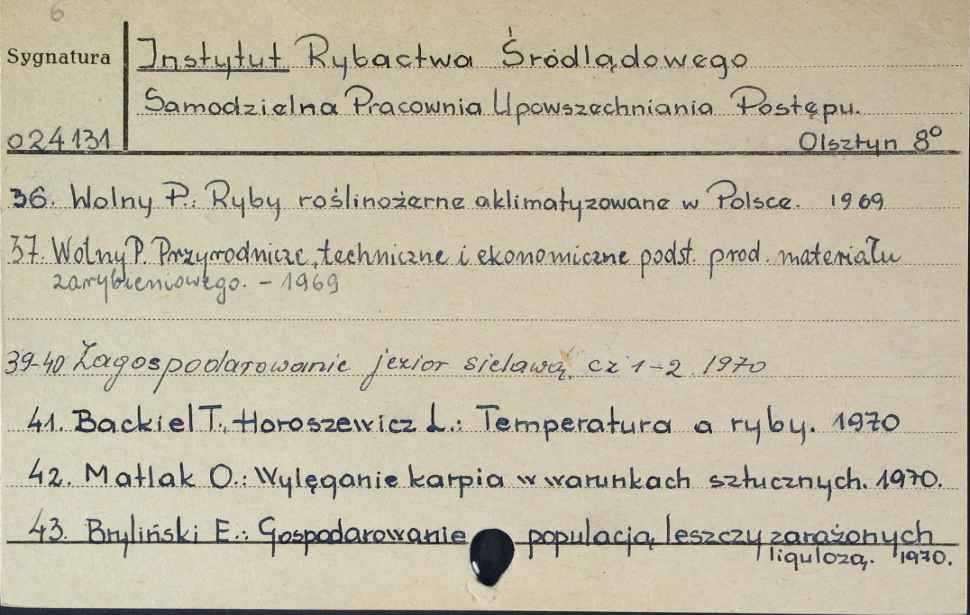 6
Sygnatura Instytut Rybactwa Śródlądowego
Samodzielna Pracownia Upowszechniania Postępu.
024131 Olsztyn 8°
36. Wolny P.: Ryby roślinożerne aklimatyzowane w Polsce. 1969
37. Wolny P. Przyrodnicze, techniczne i ekonomiczne podst. prod. materiału
zarybieniowego. - 1969
39-40 Zagospodarowanie jezior sielawą. cz 1-2. 1970
41. Backiel T., Horoszewicz L.: Temperatura a ryby. 1970
42. Matlak O.: Wylęganie karpia w warunkach sztucznych. 1970.
43. Bryliński E.: Gospodarowanie populacją leszczy zarażonych
ligulozą. 1970.